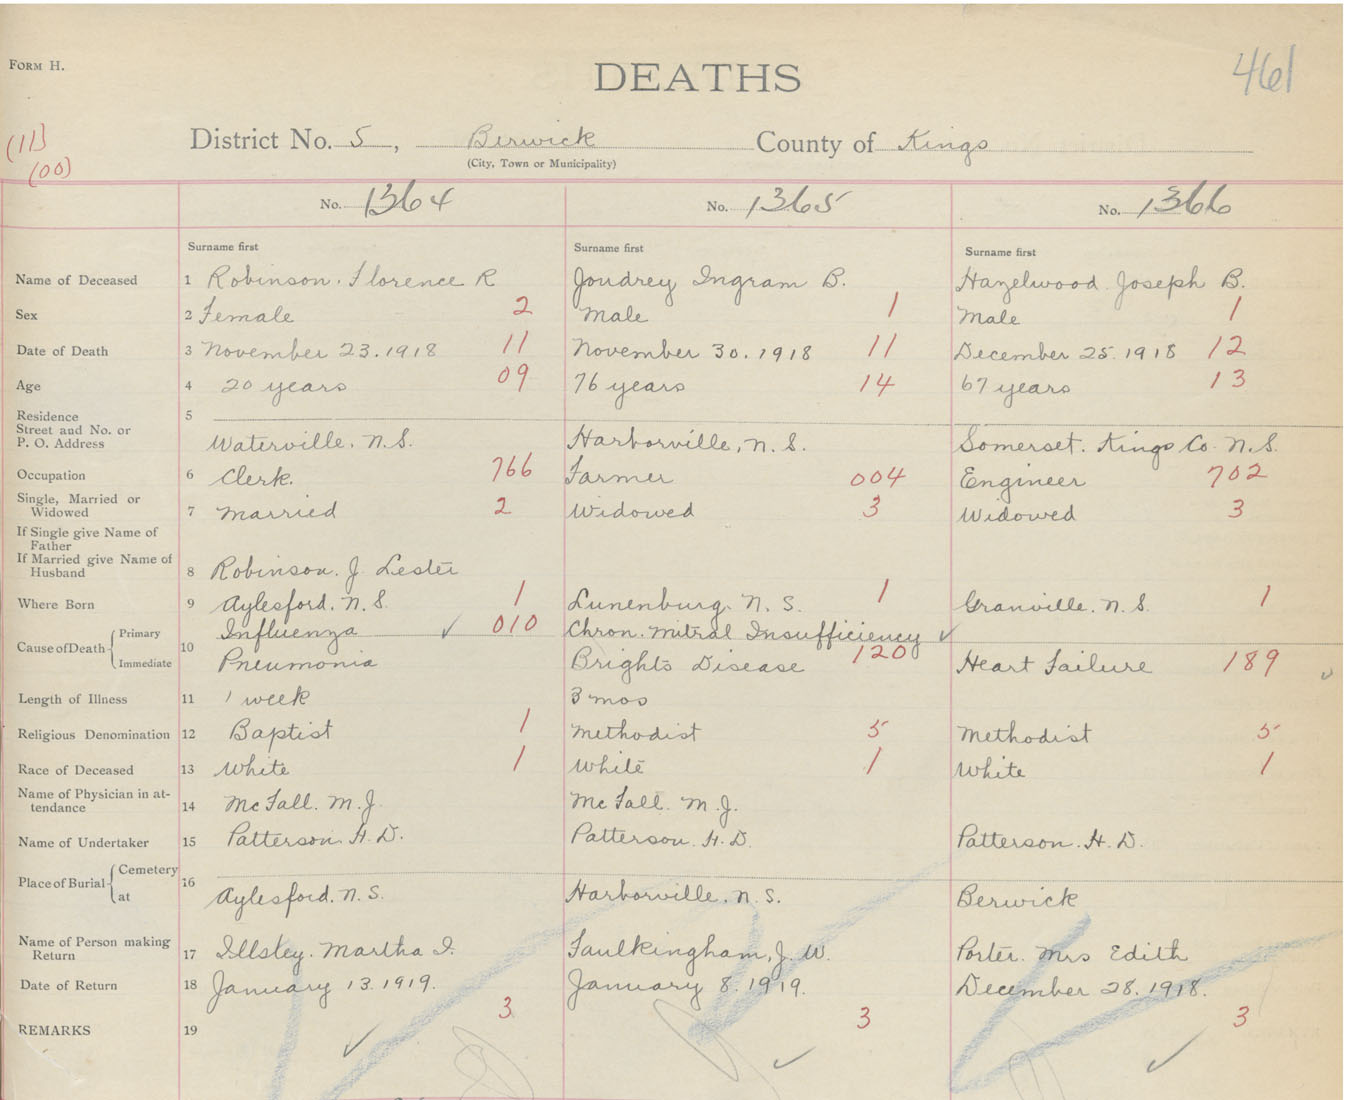 FORM H.
DEATHS
461
(11)
(00)
District No. 5, Berwick County of Kings
(City, Town or Municipality)
No. 1364 No. 1365 No. 1366
Surname first Surname first Surname first
Name of Deceased 1 Robinson. Florence R Joudrey Ingram B. Hazelwood. Joseph B.
Sex 2 Female 2 Male 1 Male 1
Date of Death 3 November 23. 1918 11 November 30. 1918 11 December 25. 1918 12
Age 4 20 years 09 76 years 14 67 years 13
Residence 5
Street and No. or
P. O. Address Waterville. N.S. Harborville, N.S. Somerset. Kings Co. N.S.
Occupation 6 Clerk. 766 Farmer 004 Engineer 702
Single, Married or
Widowed 7 Married 2 Widowed 3 Widowed 3
If Single give Name of
Father
If Married give Name of
Husband 8 Robinson. J. Lester
Where Born 9 Aylesford. N.S. 1 Lunenburg. N.S. 1 Granville. N.S. 1
Cause of Death Primary 10 Influenza ✓ 010 Chron. Mitral Insufficiency ✓
Immediate Pneumonia Brights Disease 120 Heart Failure 189 ✓
Length of Illness 11 1 week 3 mos
Religious Denomination 12 Baptist 1 Methodist 5 Methodist 5
Race of Deceased 13 White 1 White 1 White 1
Name of Physician in at-
tendance 14 McFall. M.J. McFall. M.J.
Name of Undertaker 15 Patterson. H.D. Patterson. H.D. Patterson. H.D.
Place of Burial Cemetery 16
at Aylesford. N.S. Harborville. N.S. Berwick
Name of Person making
Return 17 Illsley. Martha I. Faulkingham, J. W. Porter. Mrs Edith
Date of Return 18 January 13. 1919. January 8. 1919. December 28. 1918.
3 3 3
REMARKS 19 ✓ ✓ ✓